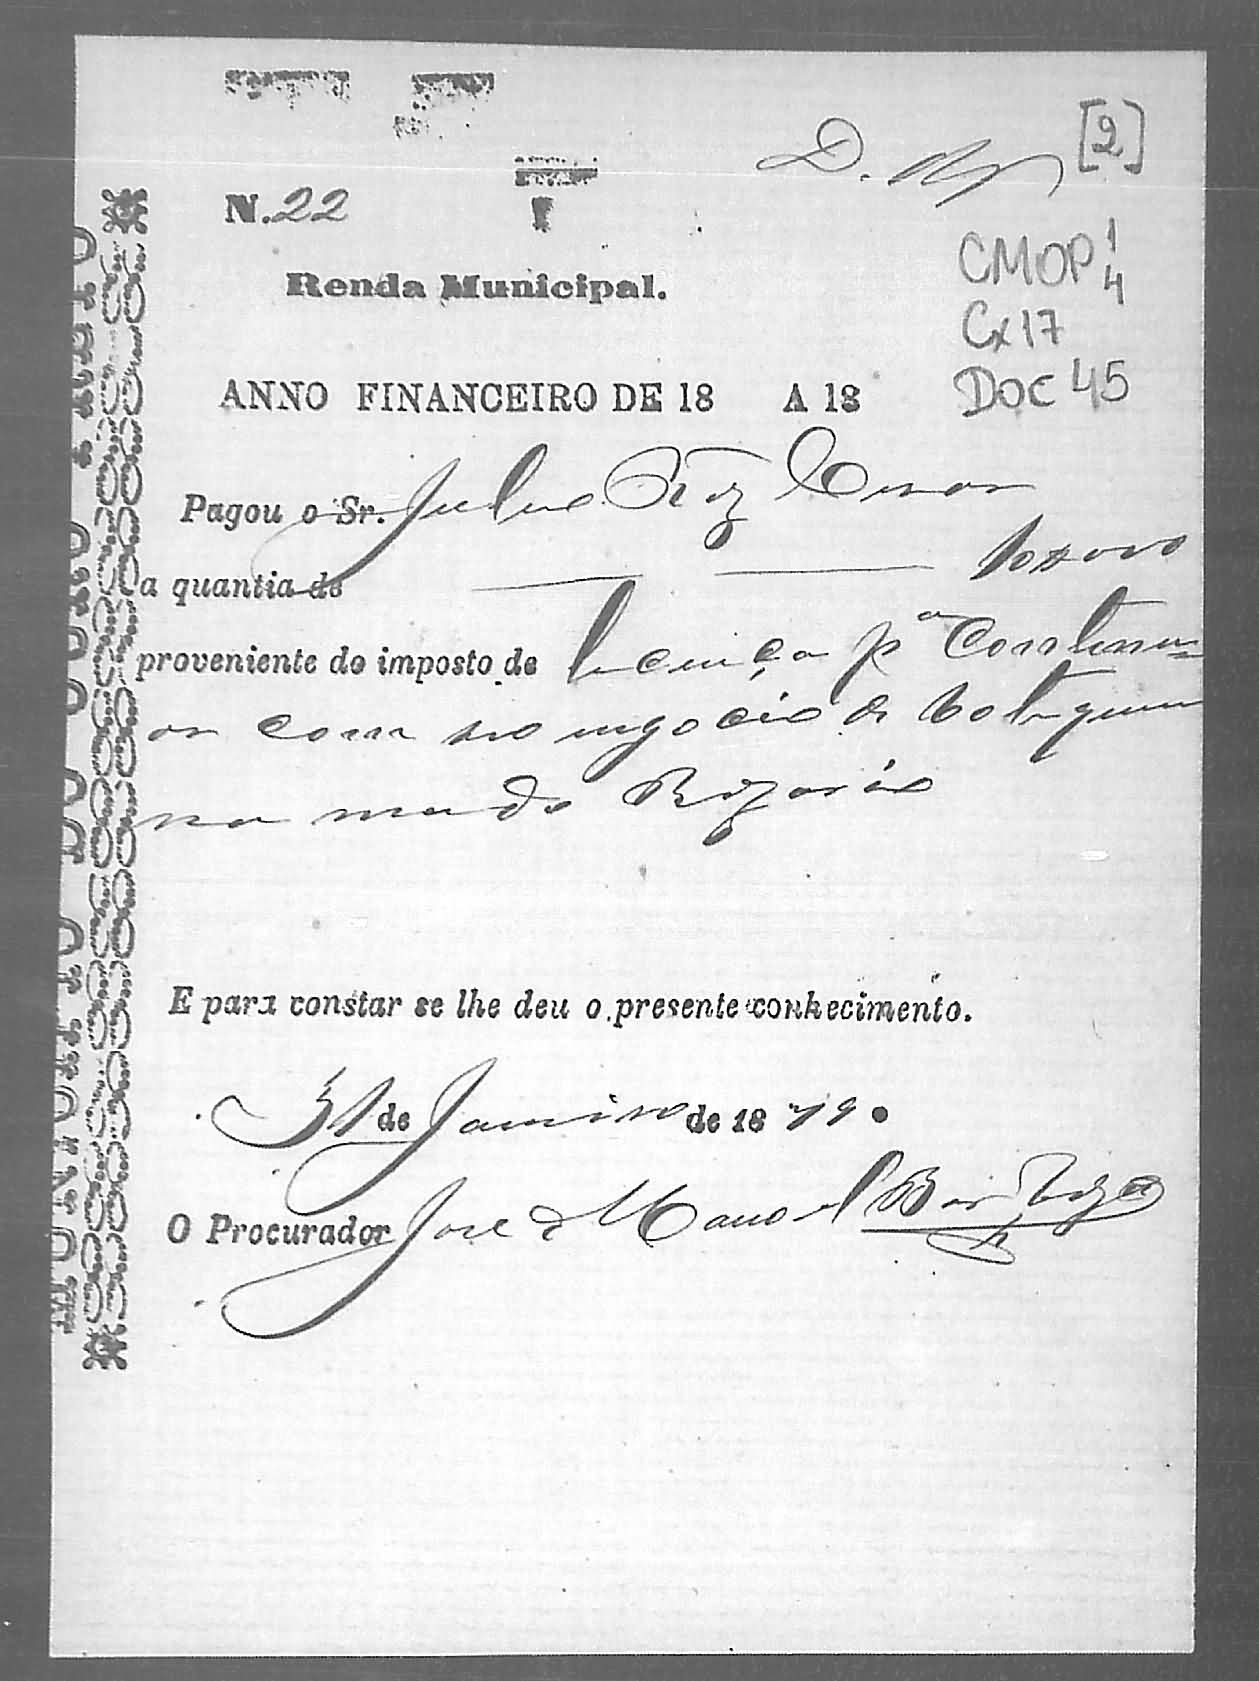 [2]
N. 22
CMOP 1
4
Cx 17
DOC 45
Renda Municipal.
ANNO FINANCEIRO DE 18 A 18
Pagou o Sr. Julio
a quantia de
proveniente do imposto de licença pª Continu=
ar com seo negocio de botequim
na rua do Rozario
E para constar se lhe deu o presente conhecimento.
31 de Janeiro de 1879.
O Procurador José Manoel
MUNICIPIO DO OURO PRETO